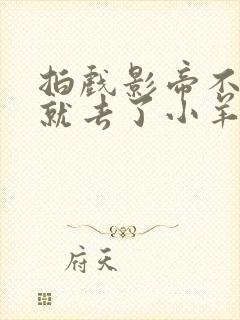 拍戏影帝不
就去了小羊
府天